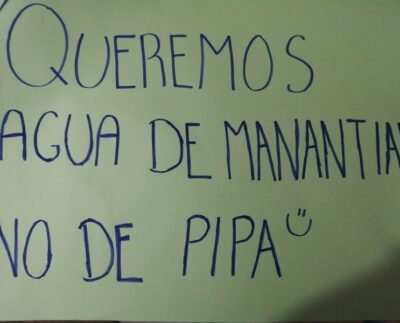 QUEREMOS
AGUA DE MANANTIA
NO DE PIPA